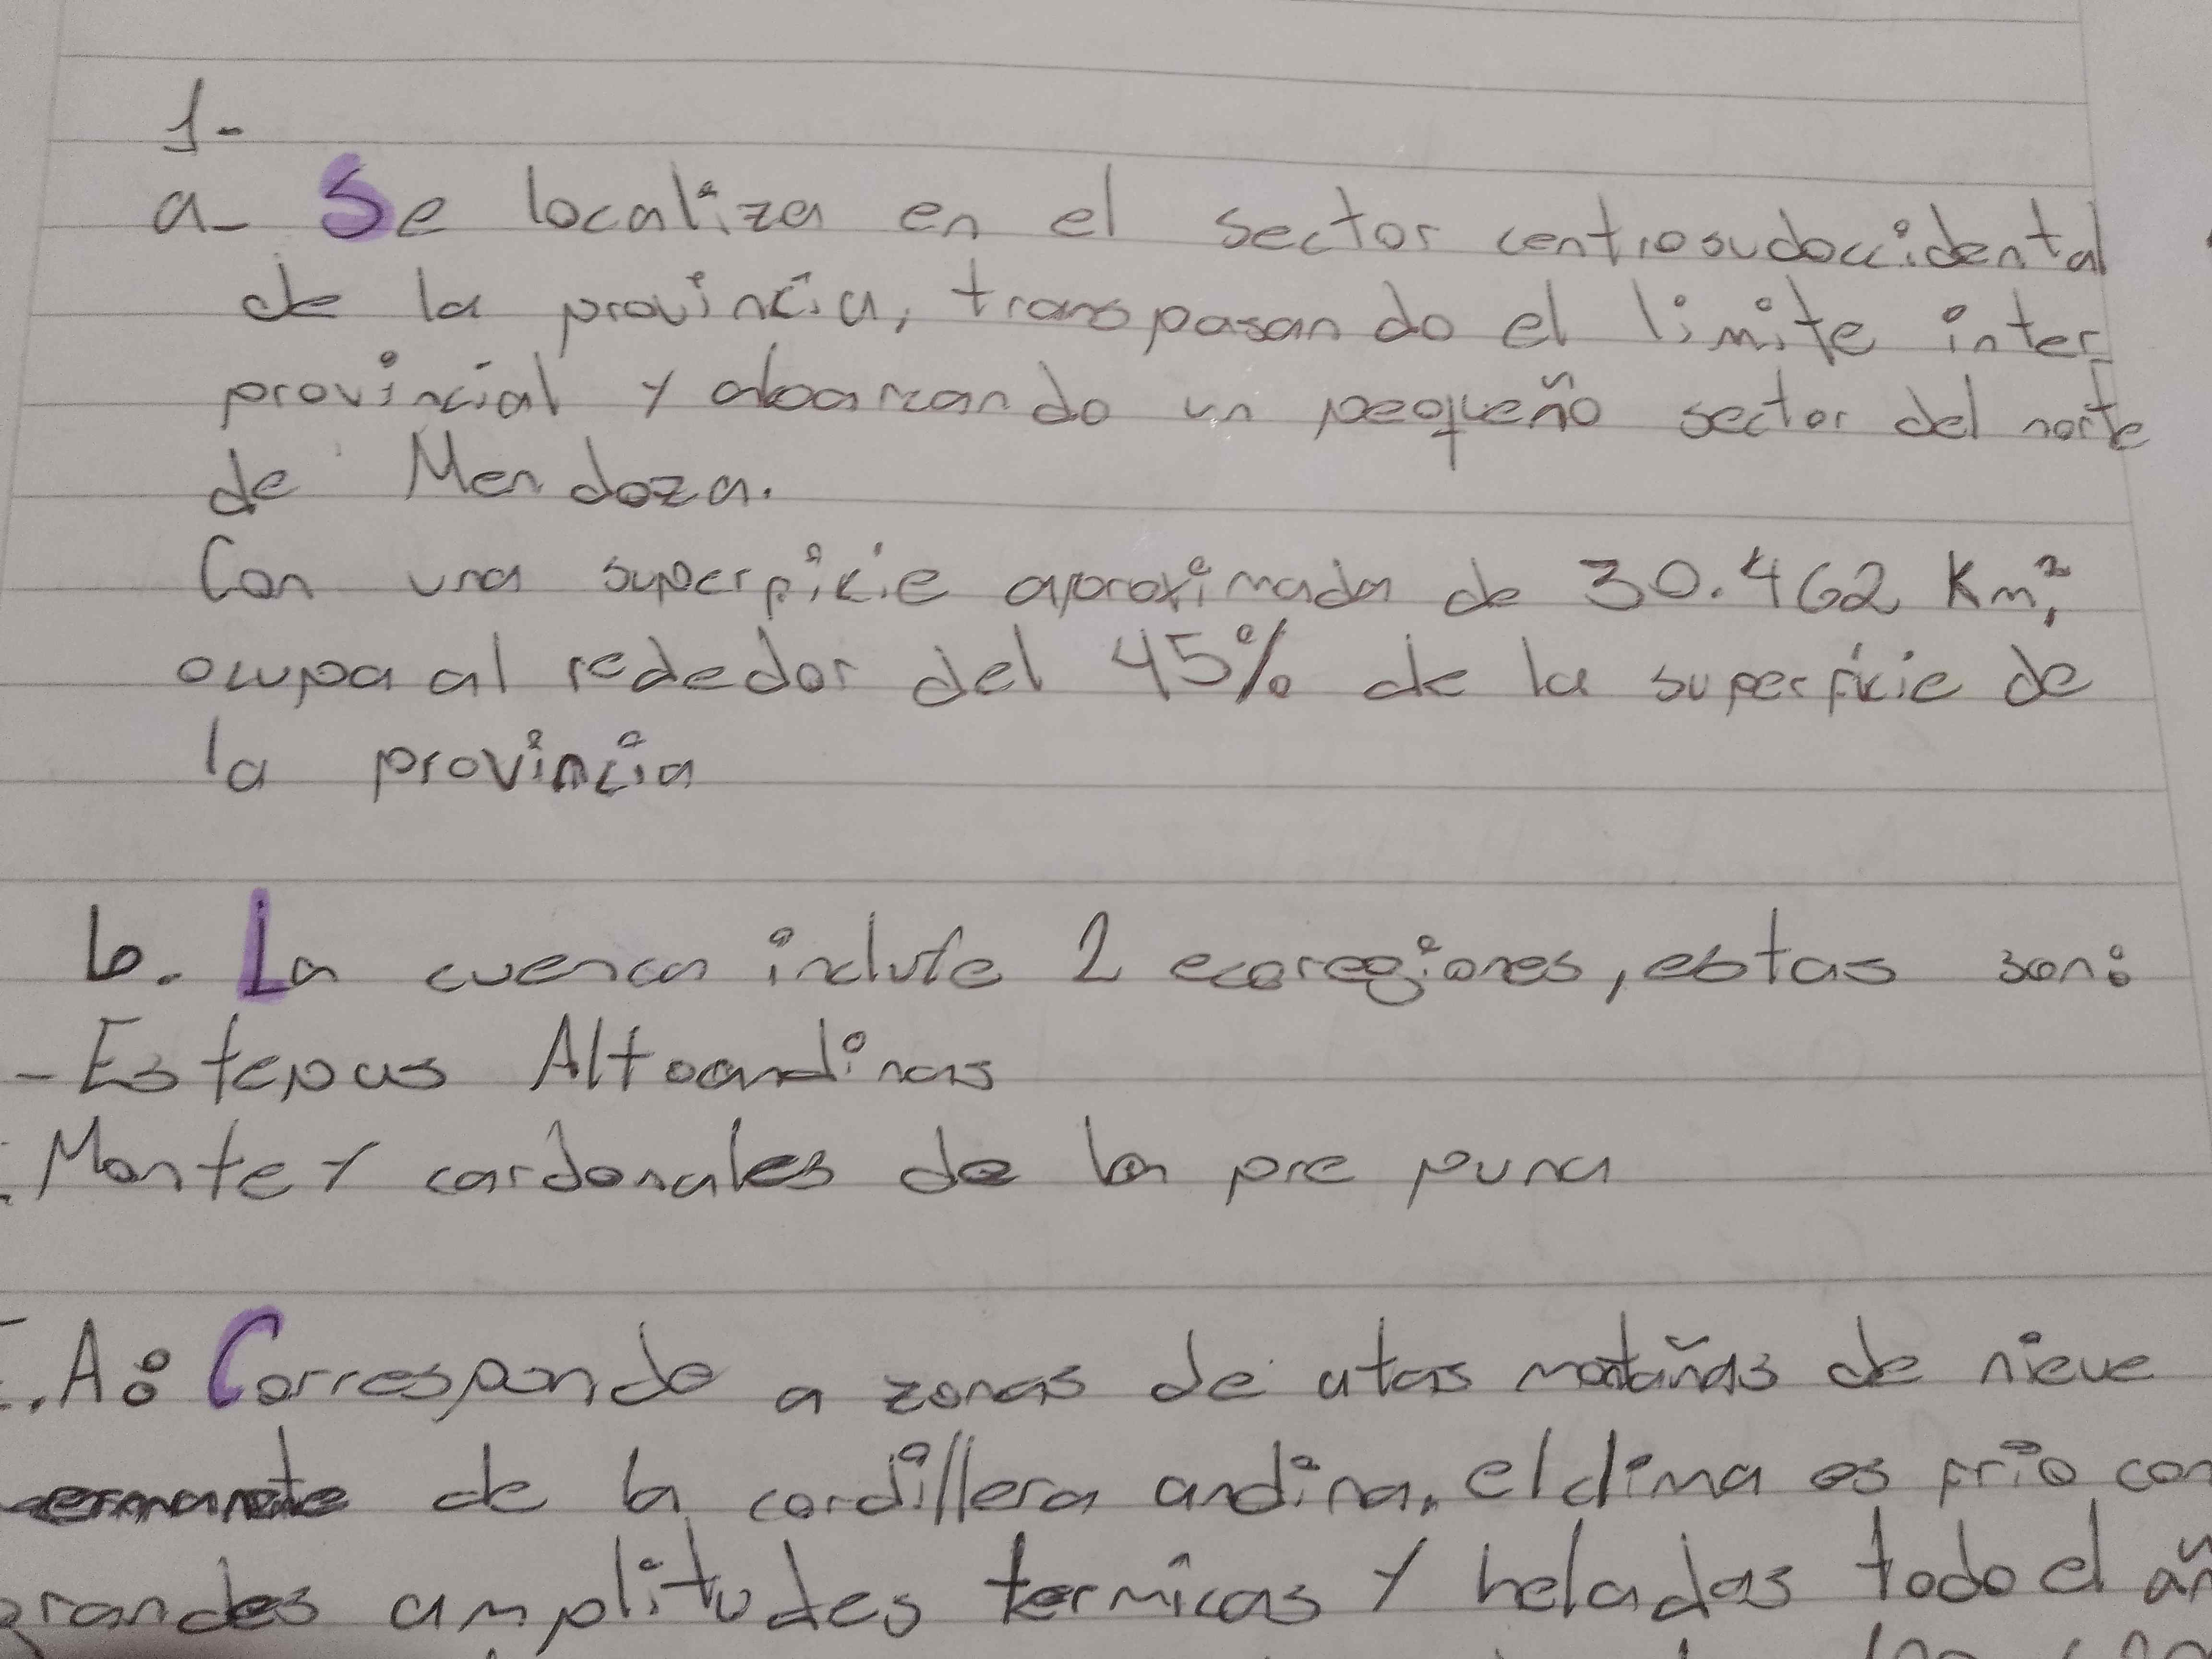 1-
a- Se localiza en el sector centrosudoccidental
de la provincia, transpasando el limite inter-
provincial y abarcando un pequeño sector del norte
de Mendoza.
Con una superficie aproximada de 30.462 Km²,
ocupa al rededor del 45% de la superficie de
la provincia
b. La cuenca incluye 2 ecoregiones, estas son:
- Estepas Altoandinas
. Monte y cardonales de la pre puna
E.A: Corresponde a zonas de atas montañas de nieve
ermanente de la cordillera andina, el clima es frio con
grandes amplitudes termicas y heladas todo el añ